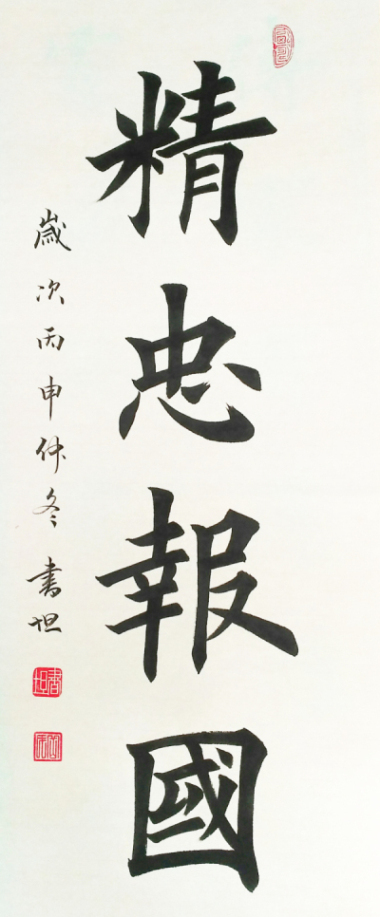 精忠報國
歲次丙申仲冬書坦